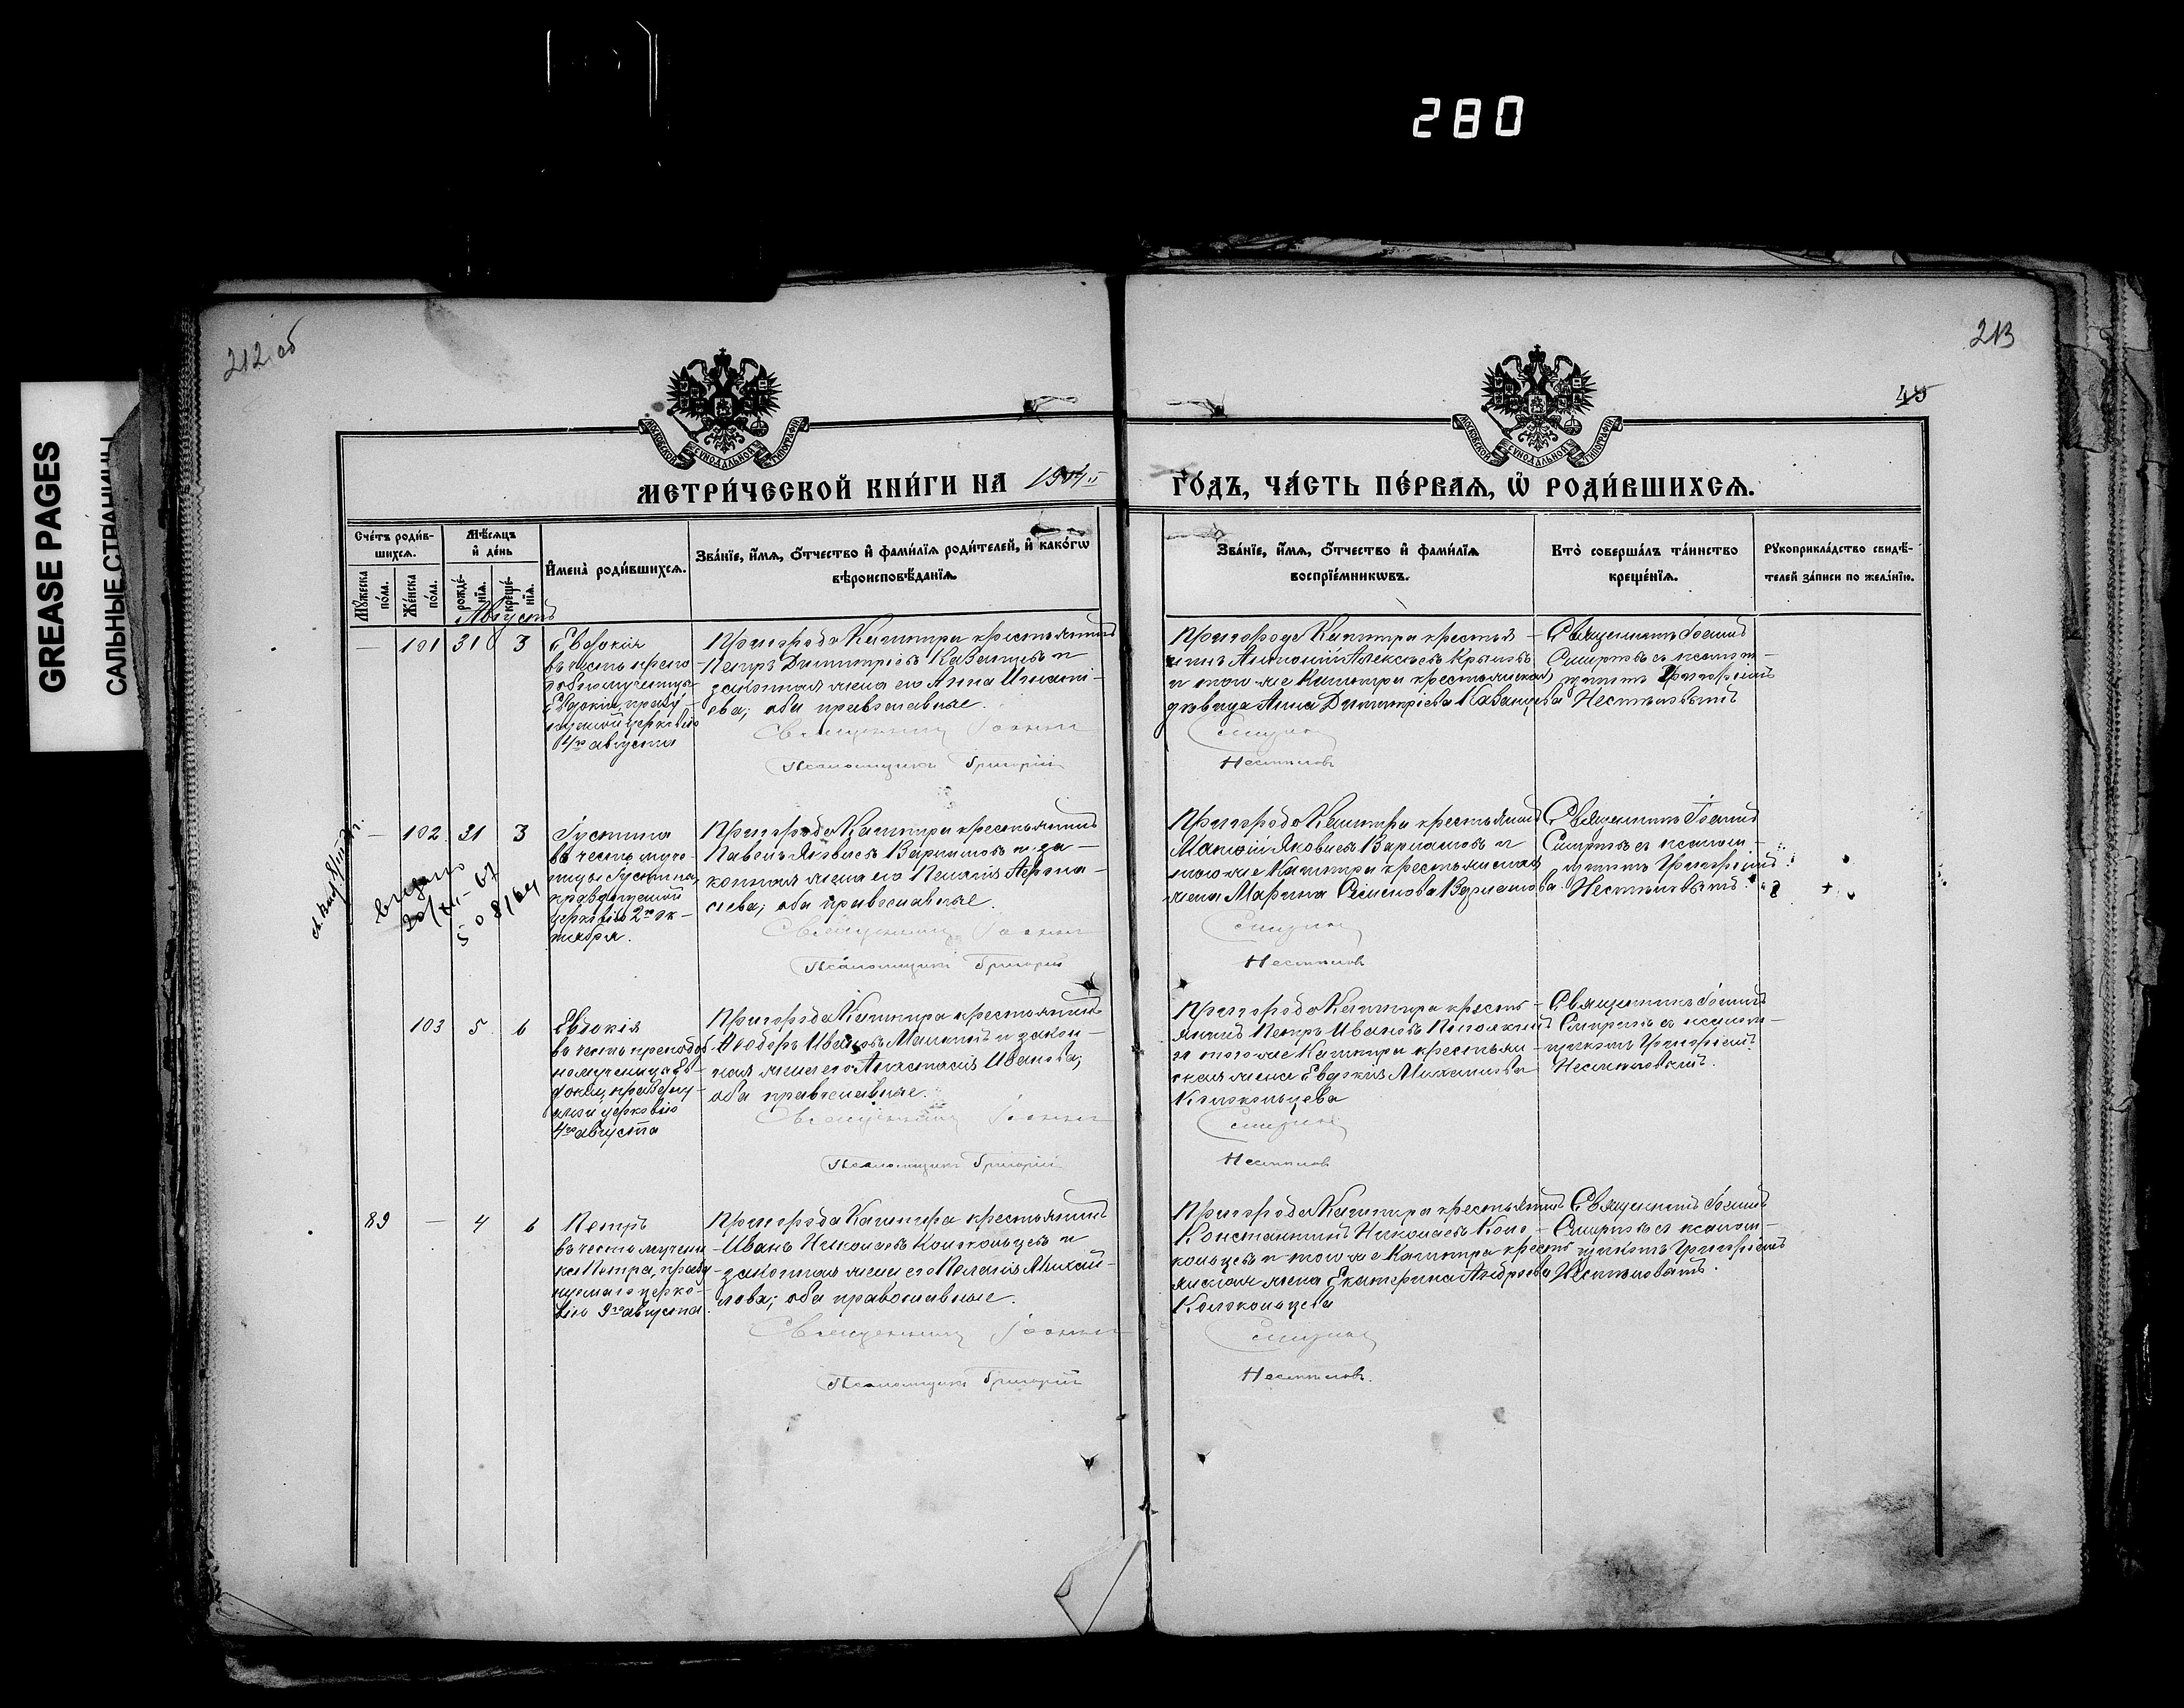 280
GREASE PAGES
САЛЬНЫЕ СТРАНИЦЫ
212 об
213
45
МЕТРИ́ЧЕСКОЙ КНИ́ГИ НА 1904
ГО́ДЪ, ЧА́СТЬ ПЕ́РВАѦ, Ѽ РОДИ́ВШИХСѦ.
Сче́тъ роди́в-
шихсѧ.
Мꙋ́жеска по́ла.
Же́нска по́ла.
Мѣ́сѧцъ
и҆ де́нь
рожде́-
нїѧ.
креще́-
нїѧ.
И҆мена̀ роди́вшихсѧ.
Зва́нїе, и҆́мѧ, о҆́тчество и҆ фами́лїѧ роди́телей, и҆ како́гѡ
вѣроисповѣ́данїѧ.
Зва́нїе, и҆́мѧ, о҆́тчество и҆ фами́лїѧ
воспрїе́мникѡвъ.
Кто̀ соверша́лъ та́инство
креще́нїѧ.
Рꙋкоприкла́дство свидѣ́-
телей за́писи по жела́нїю.
Августъ
101 31 3
Евдокія
въ честь препо-
добномученицы
Евдокіи, празд-
нуемой церковію
4го августа
Пригорода Кашпира крестьянинъ
Петръ Димитріевъ Казанцевъ и
законная жена его Анна Игнатi-
ева; оба православные.
Священникъ Іоаннъ
Псаломщикъ Григорій
Пригорода Кашпира крестья-
нинъ Алексѣевъ
и того же Кашпира крестьянская
дѣвица Анна Димитріева Казанцева
Смирнов
Нестеловъ
Священникъ Іоаннъ
Смирновъ съ псалом-
щикомъ Григоріемъ
102 31 3
выдано
20/XI-67
Іустина
въ честь муче-
ницы Іустины,
празднуемой
церковію 2го ок-
тября.
Пригорода Кашпира крестьянинъ
Павелъ Яковлевъ Варламовъ и за-
конная жена его Пелагія
оба православные.
Священникъ Іоаннъ
Псаломщикъ Григорій
Пригорода Кашпира крестьянинъ
Яковлевъ Варламовъ и
того же Кашпира крестьянская
жена Марина Семенова Варламова
Смирнов
Нестеловъ
Священникъ Іоаннъ
Смирновъ съ псалом-
щикомъ Григоріемъ
103 5 6
Евдокія
въ честь преподоб-
номученицы Ев-
докіи, праздну-
емой церковію
4го августа
Пригорода Кашпира крестьянинъ
Ѳеодоръ Ивановъ и закон-
ная жена его Анастасія Иванова;
оба православные.
Священникъ Іоаннъ
Псаломщикъ Григорій
Пригорода Кашпира кресть-
янинъ Петръ Ивановъ
и того же Кашпира крестьян-
ская жена Евдокія Михаилова
Колокольцева
Смирнов
Нестеловъ
Священникъ Іоаннъ
Смирновъ съ псалом-
щикомъ Григоріемъ
89 — 4 6
Петръ
въ честь мучени-
ка Петра, праздн-
уемаго церко-
вію 9го августа.
Пригорода Кашпира крестьянинъ
Иванъ Николаевъ Колокольцевъ и
законная жена его Пелагія Михай-
лова; оба православные.
Священникъ Іоаннъ
Псаломщикъ Григорій
Пригорода Кашпира крестьянинъ
Константинъ Николаевъ Коло-
кольцевъ и того же Кашпира кресть-
янская жена Екатерина
Колокольцева
Смирнов
Нестеловъ
Священникъ Іоаннъ
Смирновъ съ псалом-
щикомъ Григоріемъ